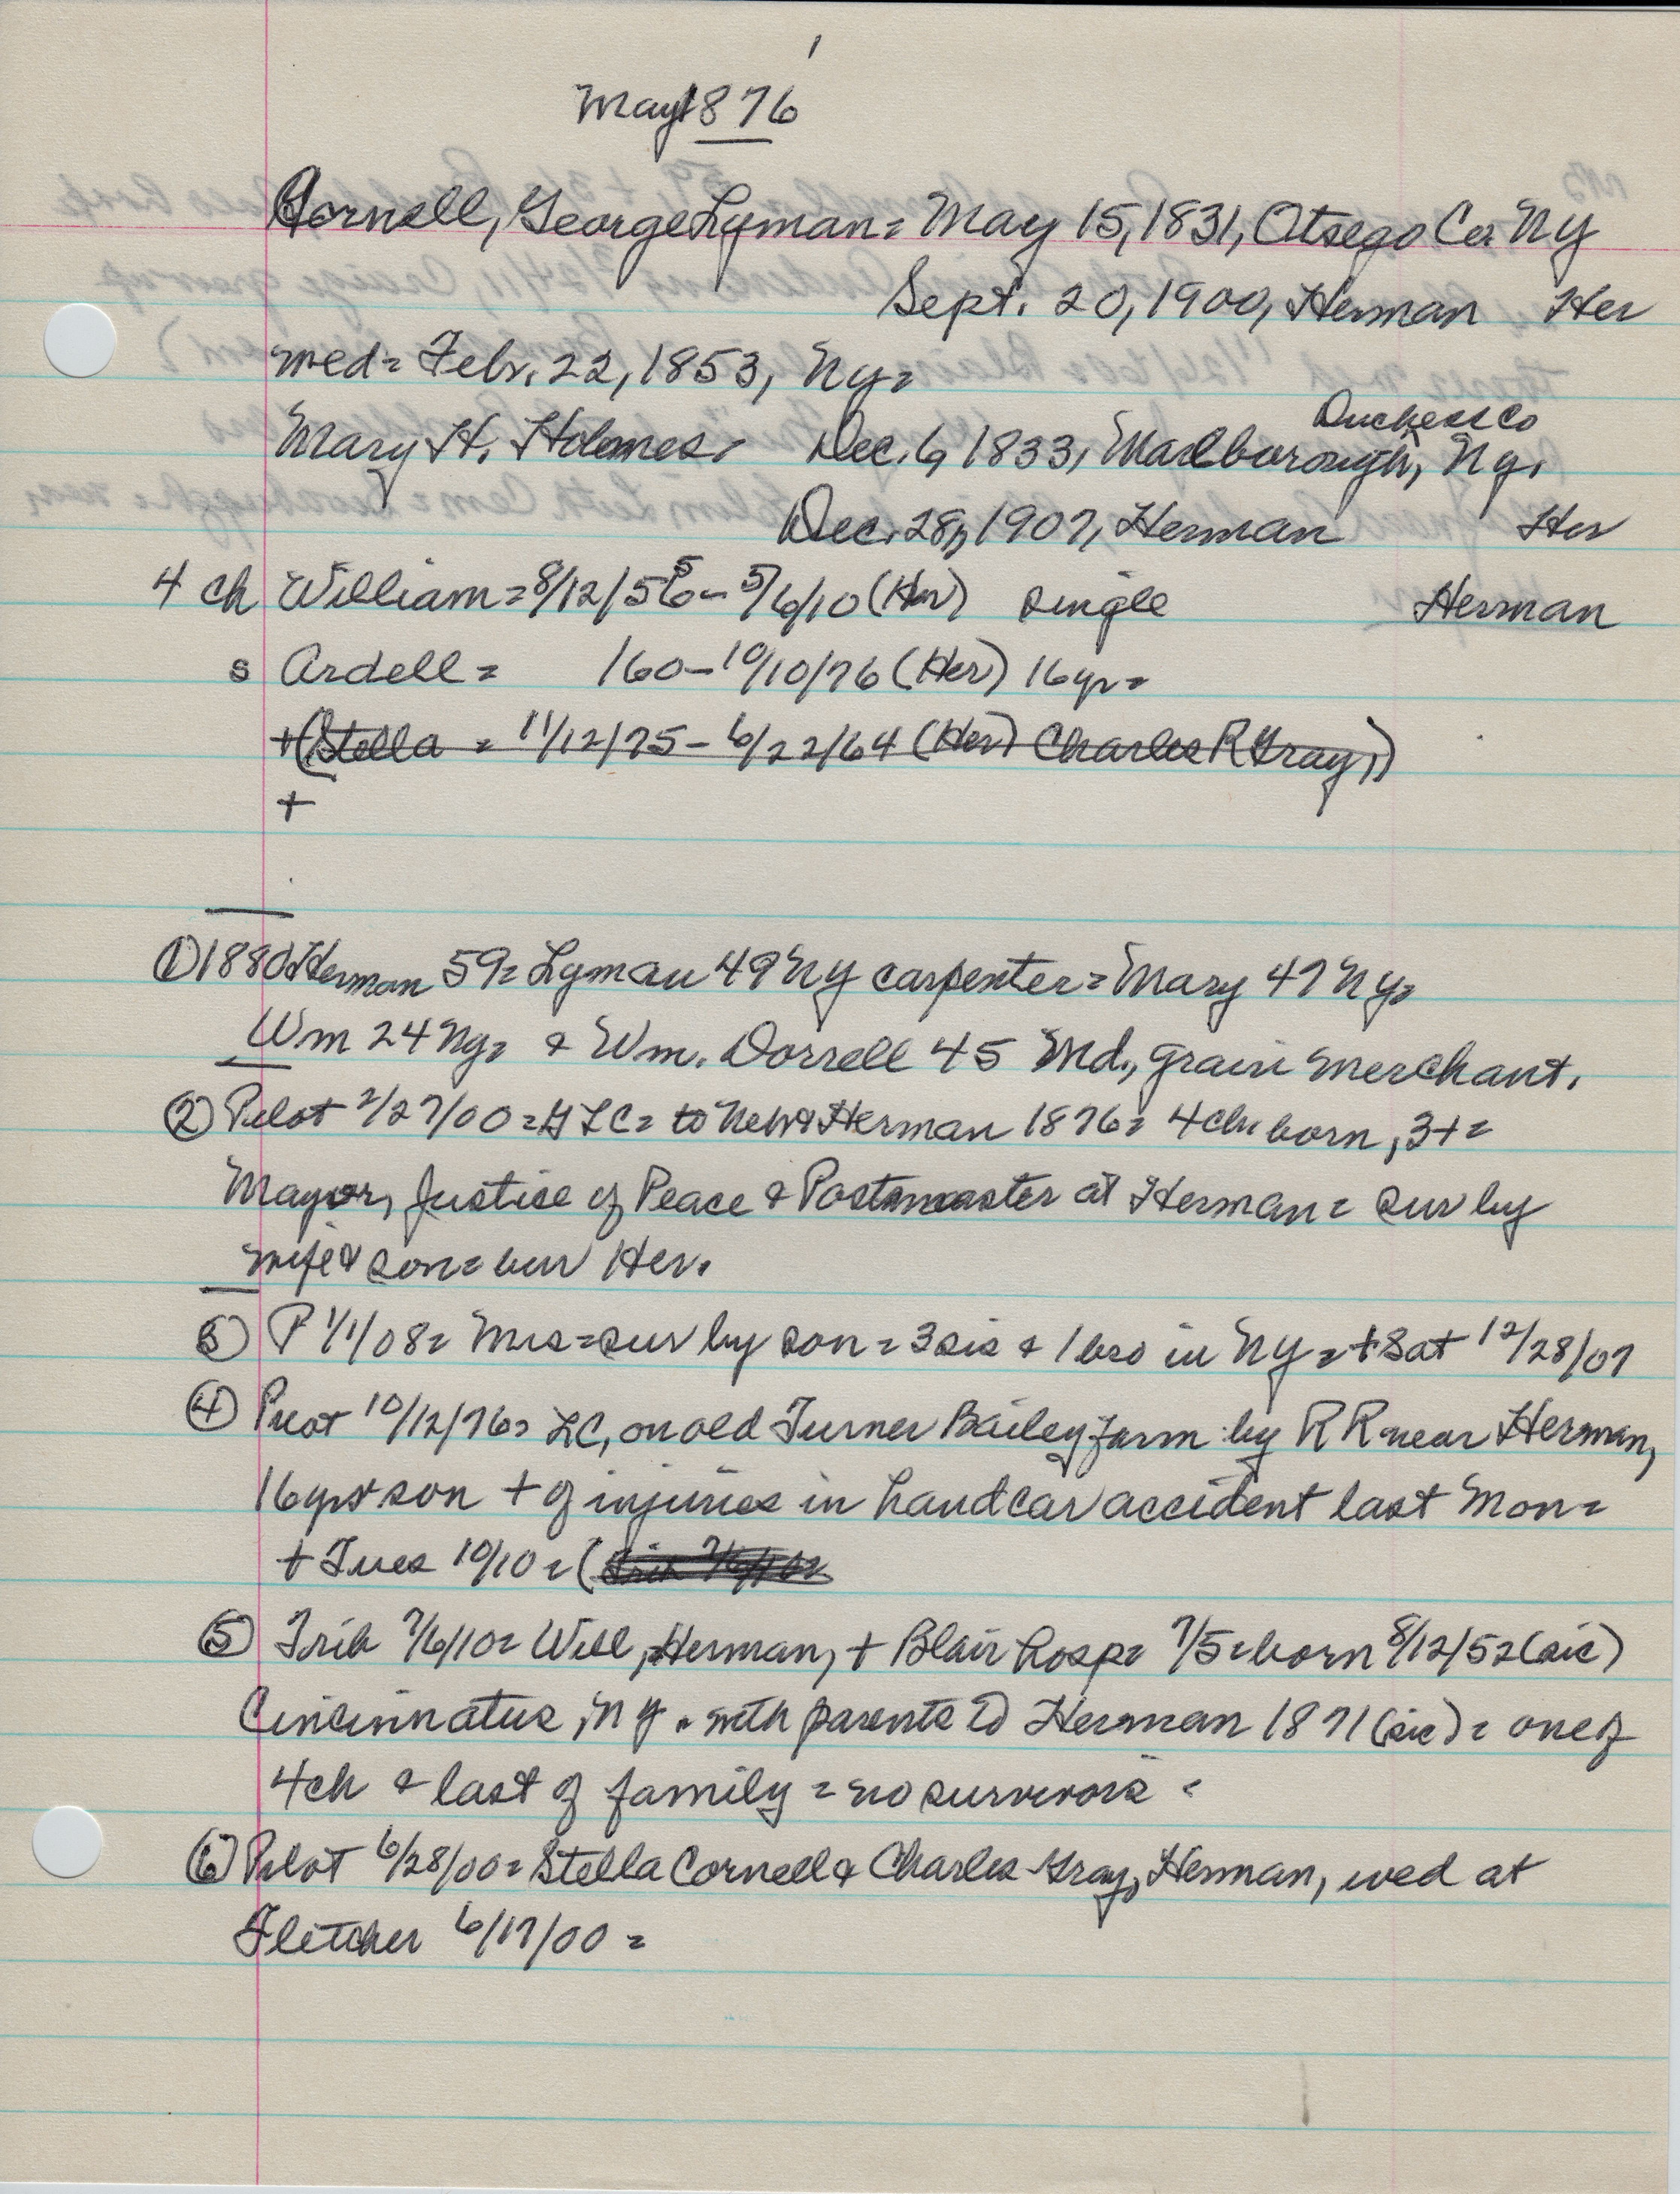 1
May 1876
Cornell, George Lyman = May 15, 1831, Otsego Co. NY
Sept. 20, 1900, Herman Her
wed = Febr. 22, 1853, NY =
Duchess Co
Mary H. Holmes. Dec. 6, 1833, Marlborough, Ny.
Dec. 28, 1907, Herman Her
4 ch William = 8/12/55 - 5/6/10 (Her) single Herman
s Ardell = 160 - 10/10/76 (Her) 16 yr =
+(Stella = 11/12/75 - 6/22/64 (Her) Charles R Gray,)
+
① 1880 Herman 59 = Lyman 49 NY carpenter = Mary 47 NY =
Wm 24 NY = & Wm. Dorrell 45 Md., grain merchant.
② Pilot 2/27/00 = GLC = to Herman 1876 = 4 ch born, 3+ =
Mayor, Justice of Peace & Postmaster at Herman = sur by
wife & son = bur Her.
③ P 1/1/08 = Mrs = sur by son = 3 sis & 1 bro in NY = + Sat 12/28/07
④ Pilot 10/12/76 = LC, on old Turner Bailey farm by RR near Herman,
16 yr son + of injuries in handcar accident last Mon =
+ Tues 10/10 = (
⑤ Trib 7/6/10 = Will, Herman, + Blair hosp = 7/5 = born 8/12/52 (sic)
Cincinnatus, NY. with parents to Herman 1871 (sic) = one of
4 ch & last of family = no survivors =
⑥ Pilot 6/28/00 = Stella Cornell & Charles Gray, Herman, wed at
Fletcher 6/17/00 =